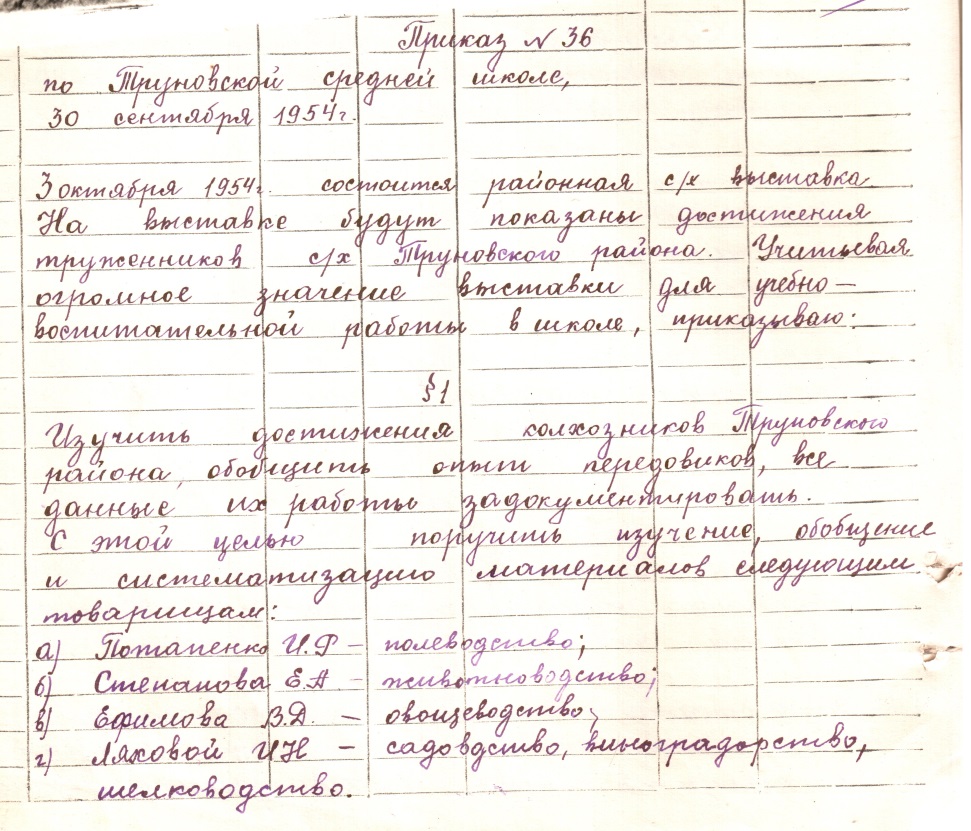 Приказ № 36
по Труновской средней школе,
30 сентября 1954г.
3 октября 1954г. состоится районная с/х выставка.
На выставке будут показаны достижения
труженников с/х Труновского района. Учитывая
огромное значение выставки для учебно—
воспитательной работы в школе, приказываю:
§1
Изучить достижения колхозников Труновского
района, обобщить опыт передовиков, все
данные их работы задокументировать.
С этой целью поручить изучение, обобщение
и систематизацию материалов следующим
товарищам:
а) Потапенко И.Ф – полеводство;
б) Степанова Е.А – животноводство;
в) Ефимова В.Д. – овощеводство;
г) Ляховой И Н – садовдство, виноградорство,
шелководство.